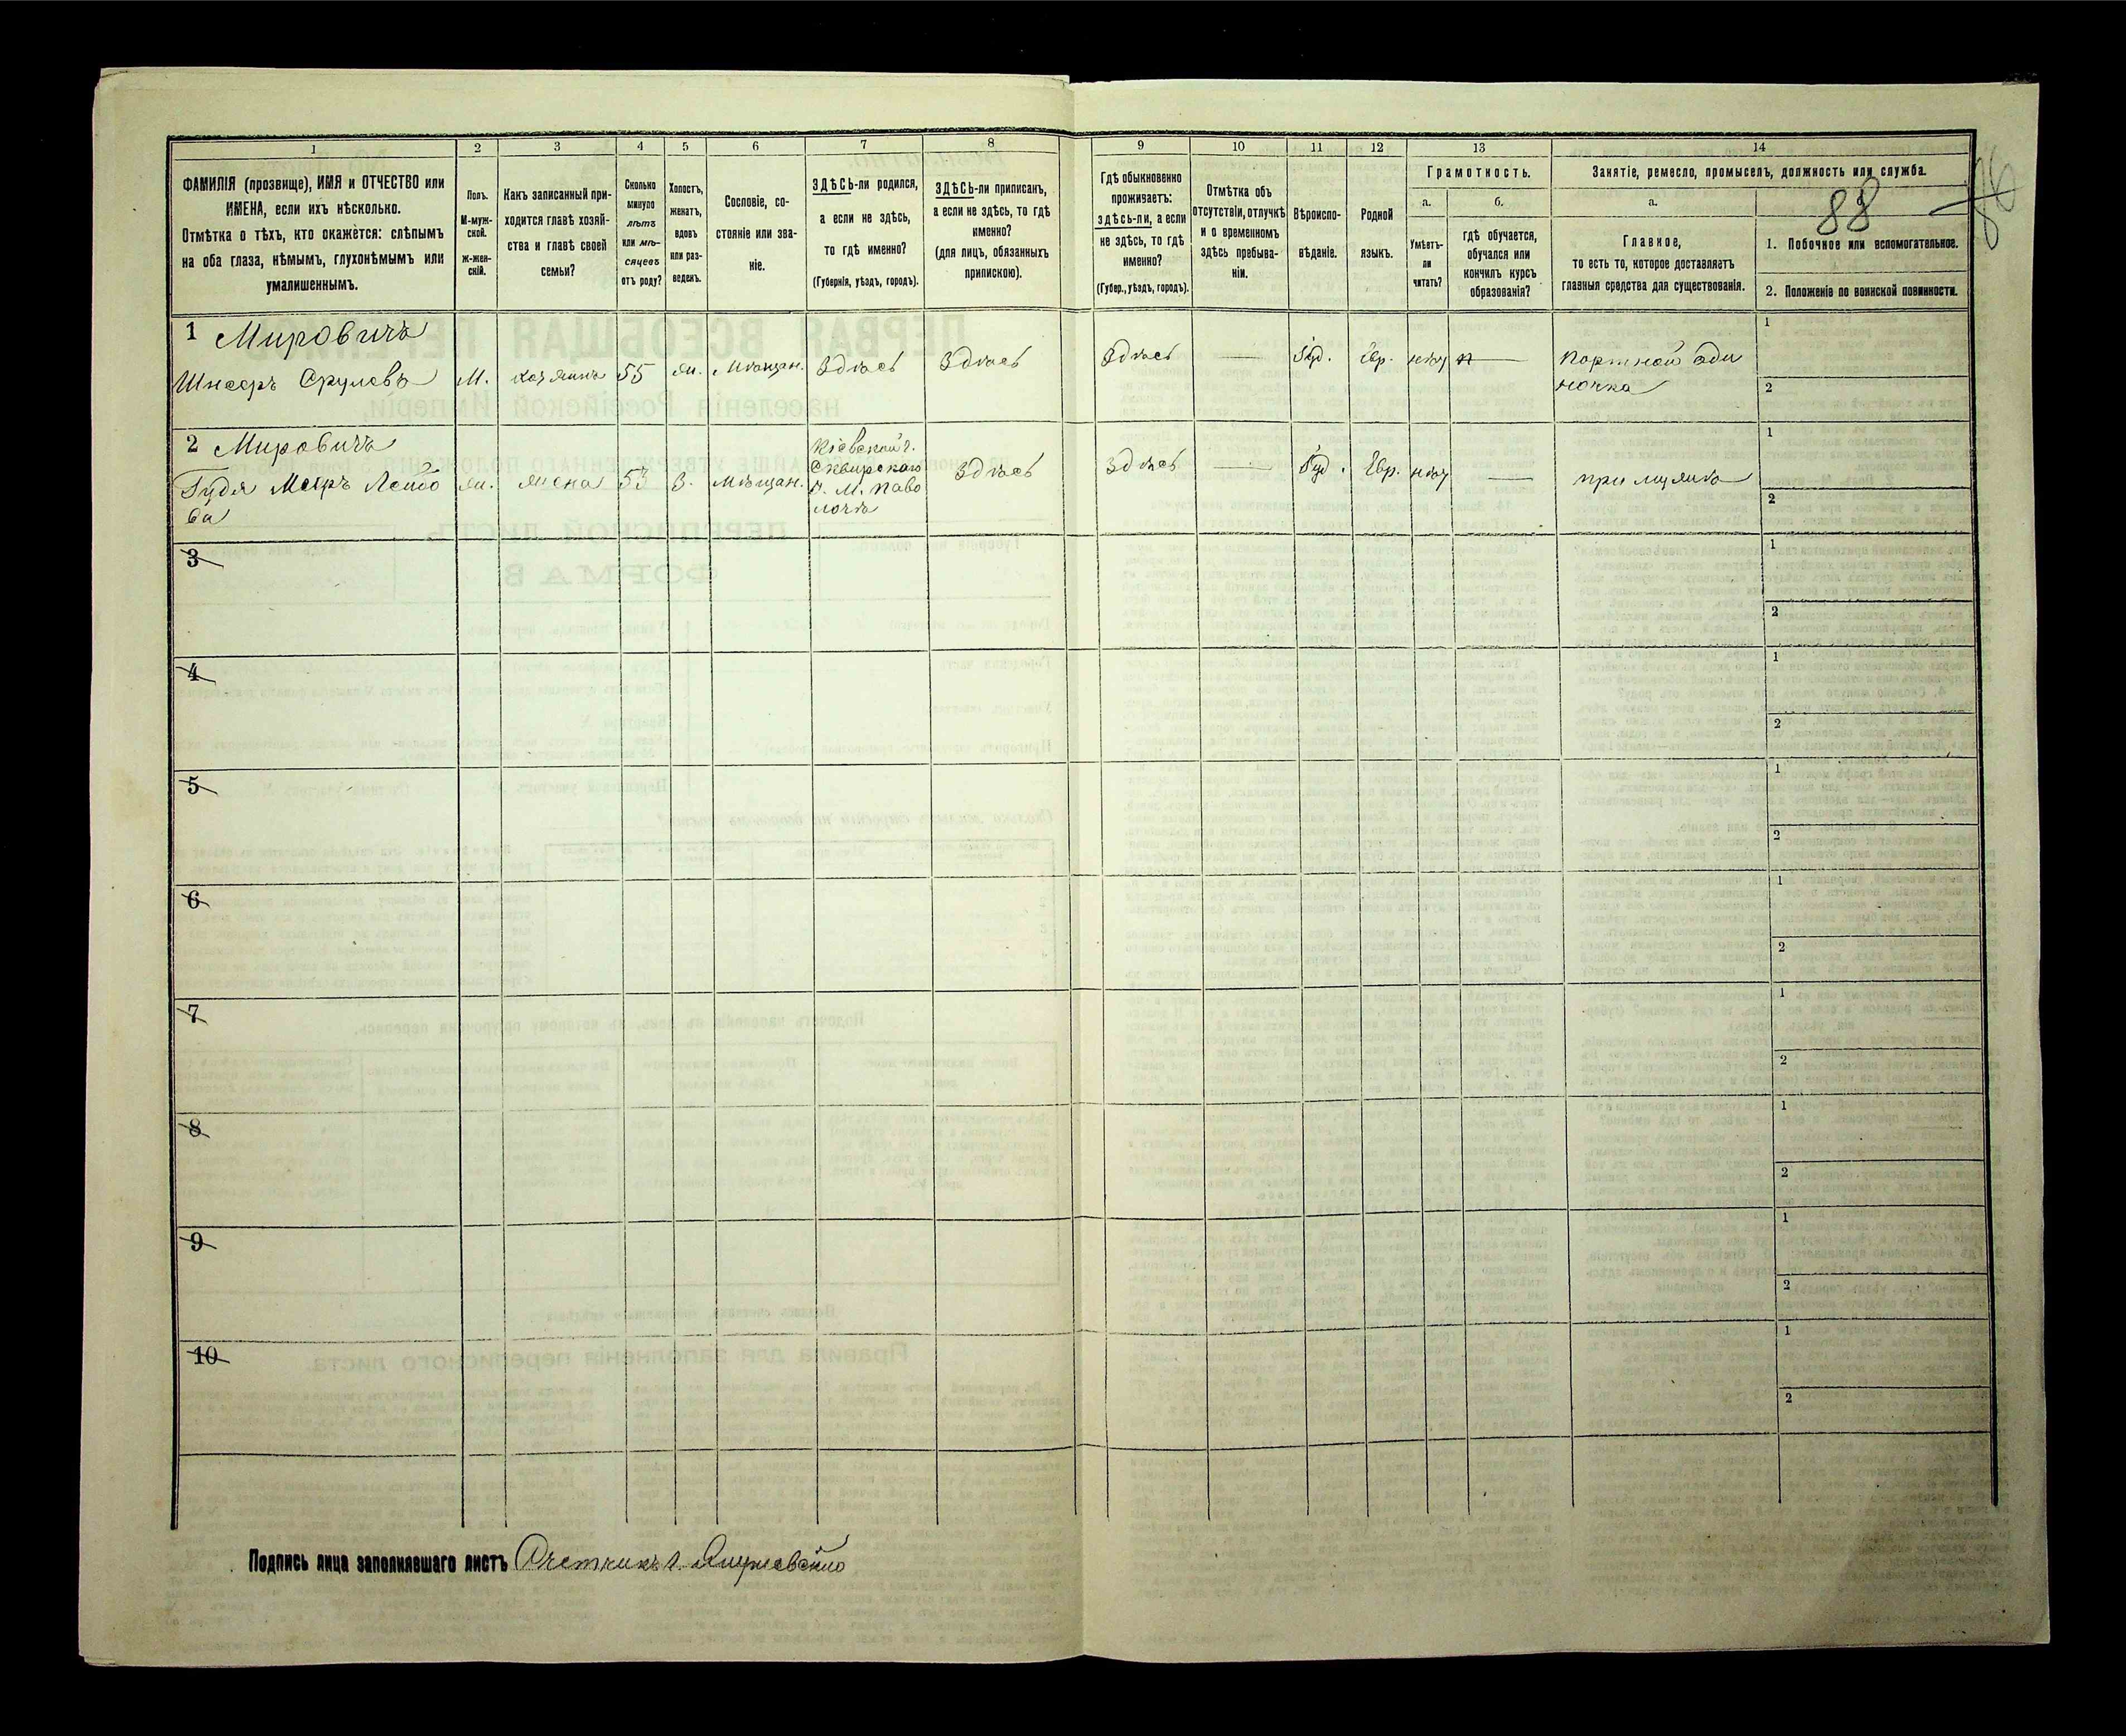 1
ФАМИЛІЯ (прозвище), ИМЯ и ОТЧЕСТВО или
ИМЕНА, если ихъ нѣсколько.
Отмѣтка о тѣхъ, кто окажется: слѣпымъ
на оба глаза, нѣмымъ, глухонѣмымъ или
умалишеннымъ.
2
Полъ.
М-муж-
ской.
ж-жен-
скій.
3
Какъ записанный при-
ходится главѣ хозяй-
ства и главѣ своей
семьи?
4
Сколько
минуло
лѣтъ
или мѣ-
сяцевъ
отъ роду?
5
Холостъ,
женатъ,
вдовъ
или раз-
веденъ.
6
Сословіе, со-
стояніе или зва-
ніе.
7
ЗДѢСЬ-ли родился,
а если не здѣсь,
то гдѣ именно?
(Губернія, уѣздъ, городъ).
8
ЗДѢСЬ-ли приписанъ,
а если не здѣсь, то гдѣ
именно?
(для лицъ, обязанныхъ
припискою).
9
Гдѣ обыкновенно
проживаетъ:
здѣсь-ли, а если
не здѣсь, то гдѣ
именно?
(Губер., уѣздъ, городъ).
10
Отмѣтка объ
отсутствіи, отлучкѣ
и о временномъ
здѣсь пребыва-
ніи.
11
Вѣроиспо-
вѣданіе.
12
Родной
языкъ.
13
Грамотность.
а.
Умѣетъ-
ли
читать?
б.
гдѣ обучается,
обучался или
кончилъ курсъ
образованія?
14
Занятіе, ремесло, промыселъ, должность или служба.
88
а.
Главное,
то есть то, которое доставляетъ
главныя средства для существованія.
1. Побочное или вспомогательное.
2. Положеніе по воинской повинности.
1 Мировичъ
Шнееръ Срулевъ М. хозяинъ 55 ж. Мѣщан. Здѣсь Здѣсь Здѣсь — Іуд. Евр. нѣт — Портной оди
ночка
1
2
2 Мировичъ
Гудя Мееръ Лейбо
ва
ж. жена 53 З. Мѣщан.
Кіевской г.
Сквирскаго
У. М. Паво
лочь
Здѣсь Здѣсь — Іуд. Евр. нѣт — при мужѣ
1
2
3
1
2
4
1
2
5
1
2
6
1
2
7
1
2
8
1
2
9
1
2
10
1
2
Подпись лица заполнявшаго листъ Счетчикъ